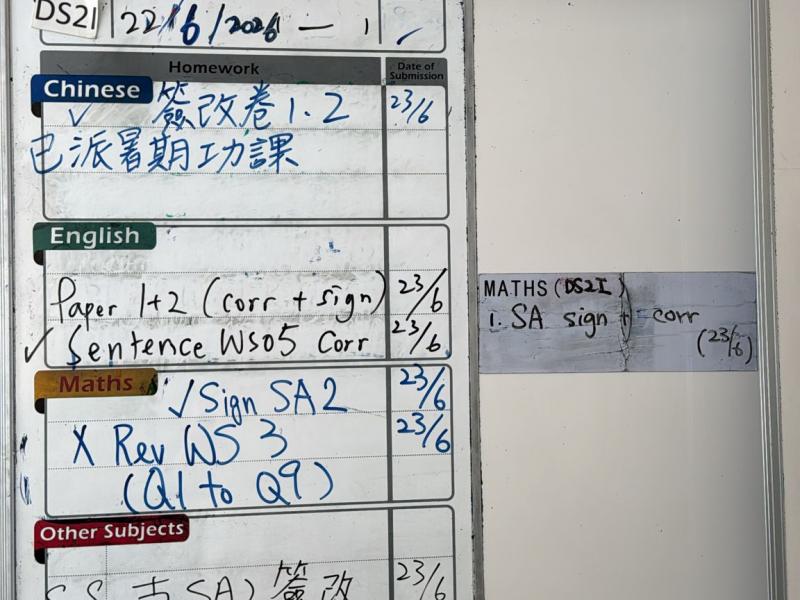 DS2I 22/6/2026 — 1
Homework Date of Submission
Chinese
✓ 簽改卷1.2 23/6
已派暑期功課
English
Paper 1+2 (corr + sign) 23/6
✓ Sentence WS05 Corr 23/6
Maths
✓ Sign SA2 23/6
X Rev WS 3 23/6
(Q1 to Q9)
Other Subjects
SA2 簽改 23/6
MATHS (DS2I)
1. SA sign + corr
(23/6)